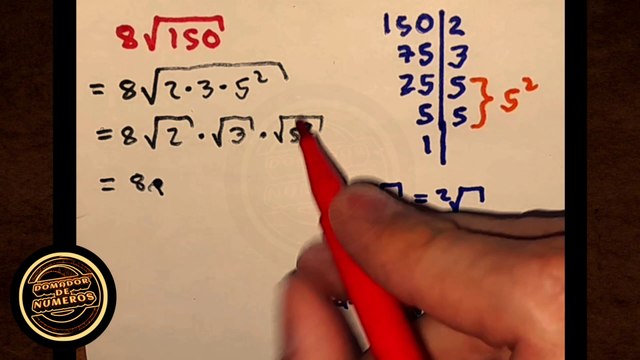 8√150
= 8√2·3·5²
= 8√2 · √3 · √5²
= 8·
150 | 2
75 | 3
25 | 5
5 | 5
1 |
} 5²
√ = ²√
DOMADOR
DE
NUMEROS